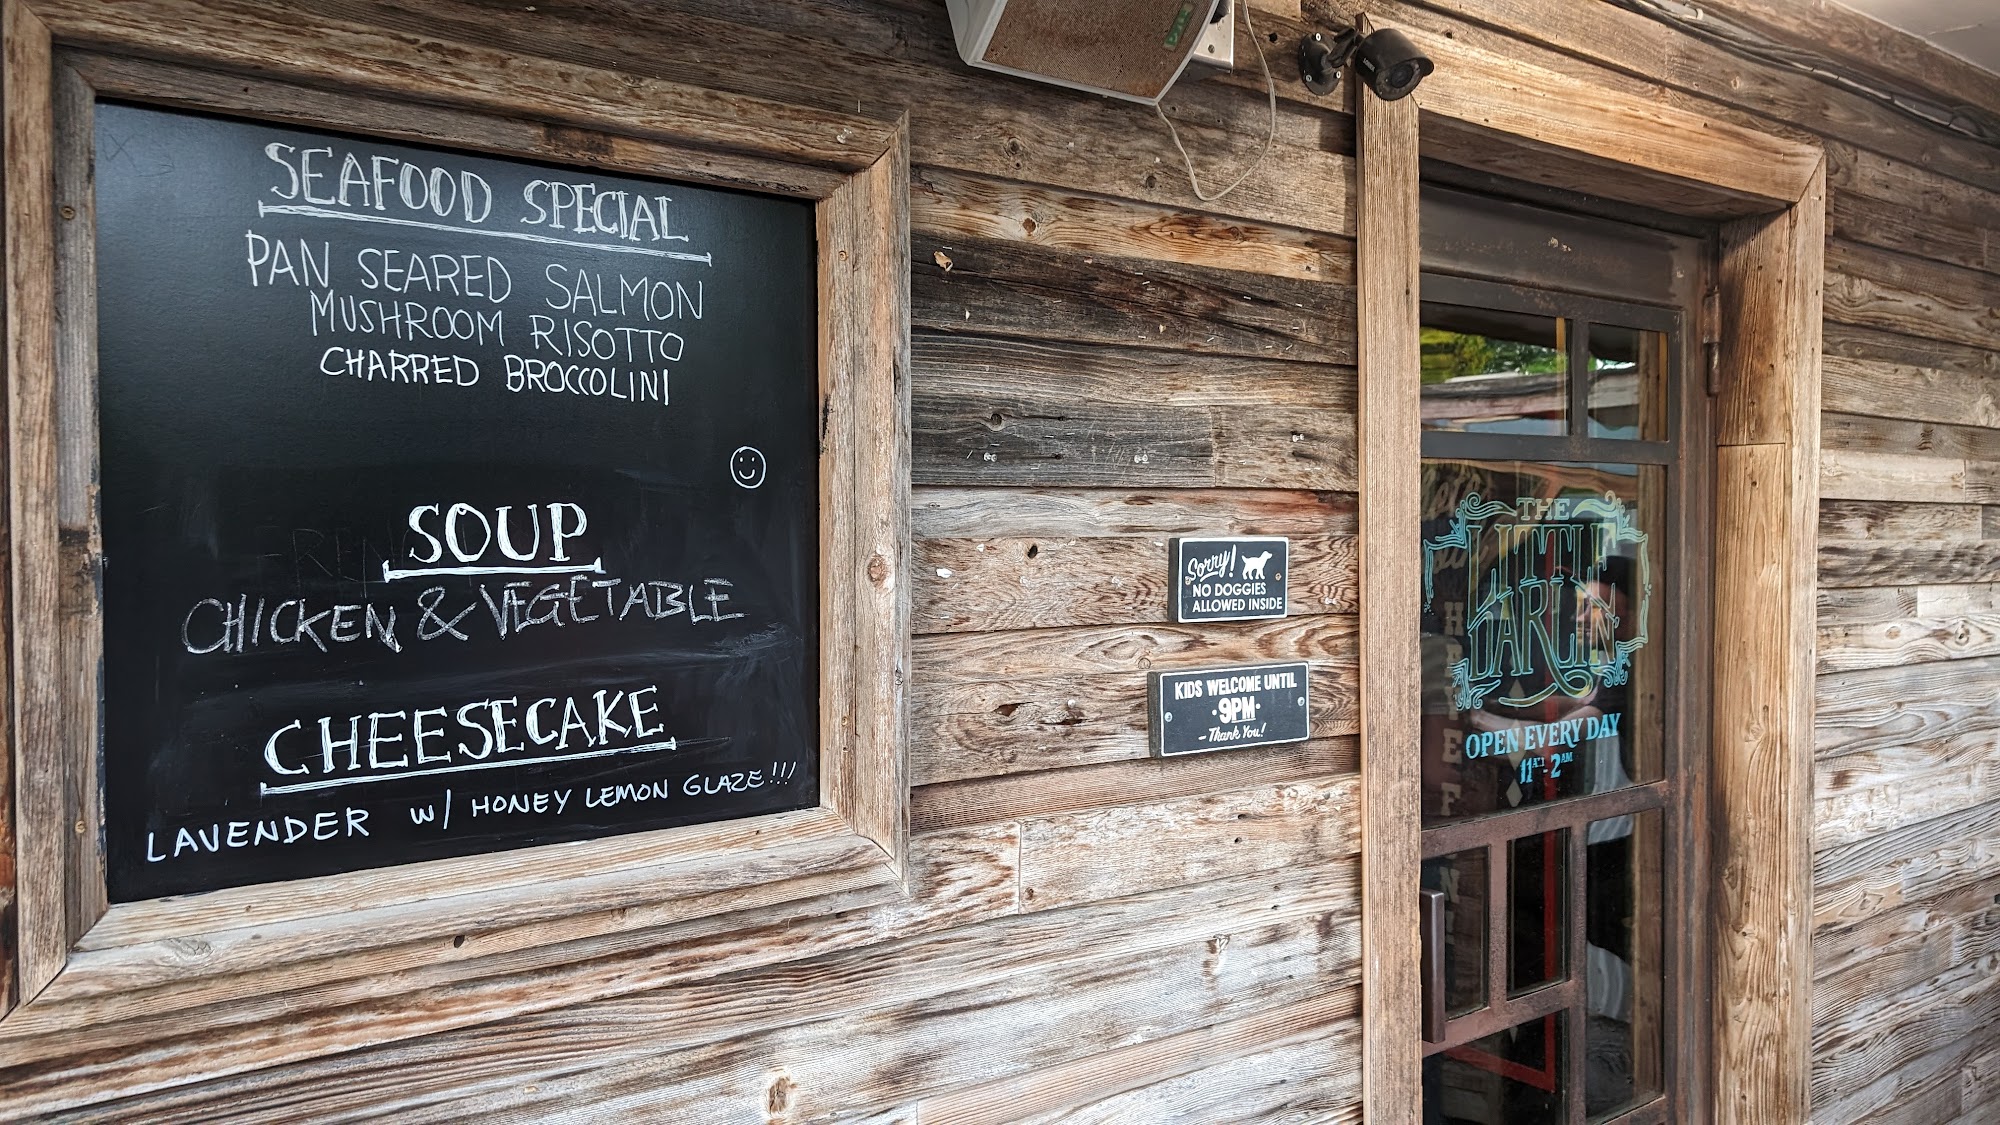 SEAFOOD SPECIAL
PAN SEARED SALMON
MUSHROOM RISOTTO
CHARRED BROCCOLINI
SOUP
CHICKEN & VEGETABLE
CHEESECAKE
LAVENDER w/ HONEY LEMON GLAZE!!!
Sorry!
NO DOGGIES
ALLOWED INSIDE
KIDS WELCOME UNTIL
·9PM·
-Thank You!
THE
LITTLE
DARLIN'
OPEN EVERY DAY
11AM-2AM